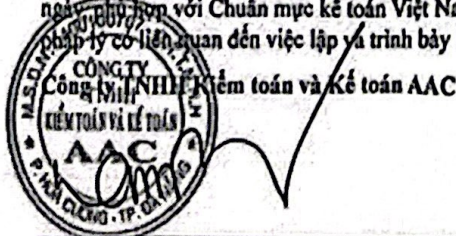 ngày, phù hợp với Chuẩn mực kế toán Việt Na
pháp lý có liên quan đến việc lập và trình bày
Công ty TNHH Kiểm toán và Kế toán AAC
CÔNG TY
TNHH
KIỂM TOÁN VÀ KẾ TOÁN
AAC